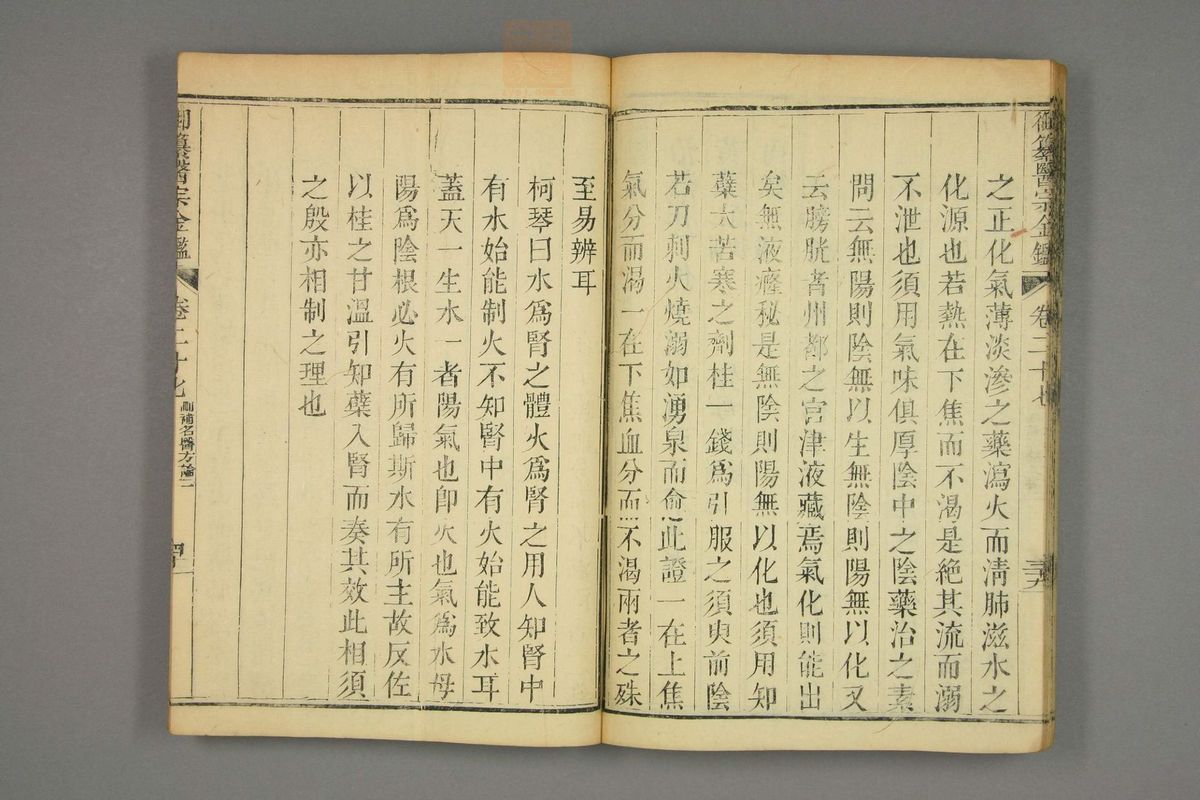 御纂醫宗金鑑 卷二十七
之正化氣薄淡滲之藥瀉火而清肺滋水之
化源也若熱在下焦而不渴是絶其流而溺
不泄也須用氣味俱厚陰中之陰藥治之素
問云無陽則陰無以生無陰則陽無以化又
云膀胱者州都之官津液藏焉氣化則能出
矣無液癃秘是無陰則陽無以化也須用知
蘗大苦寒之劑桂一錢爲引服之須臾前陰
若刀刺火燒溺如湧泉而愈此證一在上焦
氣分而渴一在下焦血分而不渴兩者之殊
至易辨耳
柯琴曰水爲腎之體火爲腎之用人知腎中
有水始能制火不知腎中有火始能致水耳
蓋天一生水一者陽氣也卽火也氣爲水母
陽爲陰根必火有所歸斯水有所主故反佐
以桂之甘溫引知蘗入腎而奏其效此相須
之殷亦相制之理也
御纂醫宗金鑑 卷二十七 刪補名醫方論二